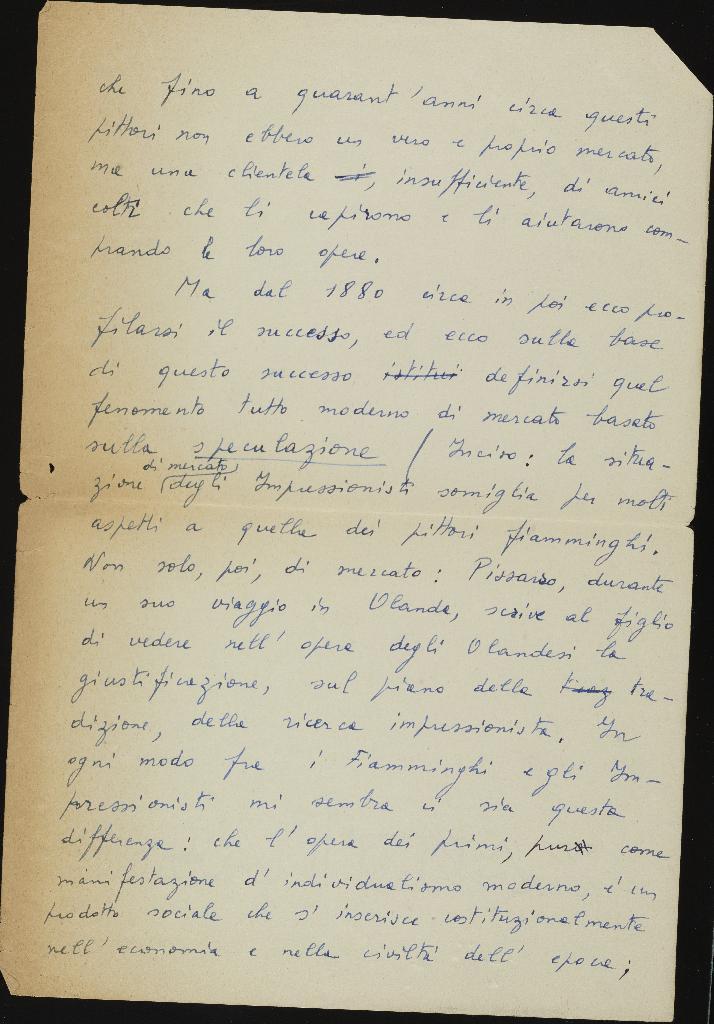 che fino a quarant'anni circa questi
pittori non ebbero un vero e proprio mercato,
ma una clientela, insufficiente, di amici
colti che li capirono e li aiutarono com-
prando le loro opere.
Ma dal 1880 circa in poi ecco pro-
filarsi il successo, ed ecco sulla base
di questo successo istitui definirsi quel
fenomento tutto moderno di mercato basato
sulla speculazione / Inciso: la situa-
di mercato
zione (degli Impressionisti somiglia per molti
aspetti a quella dei pittori fiamminghi.
Non solo, poi, di mercato: Pissarro, durante
un suo viaggio in Olanda, scrive al figlio
di vedere nell'opera degli Olandesi la
giustificazione, sul piano della tra-
dizione, della ricerca impressionista. In
ogni modo fra i Fiamminghi e gli Im-
pressionisti mi sembra ci sia questa
differenza: che l'opera dei primi, pur come
manifestazione d'individualismo moderno, è un
prodotto sociale che s'inserisce costituzionalmente
nell'economia e nella civiltà dell'epoca;